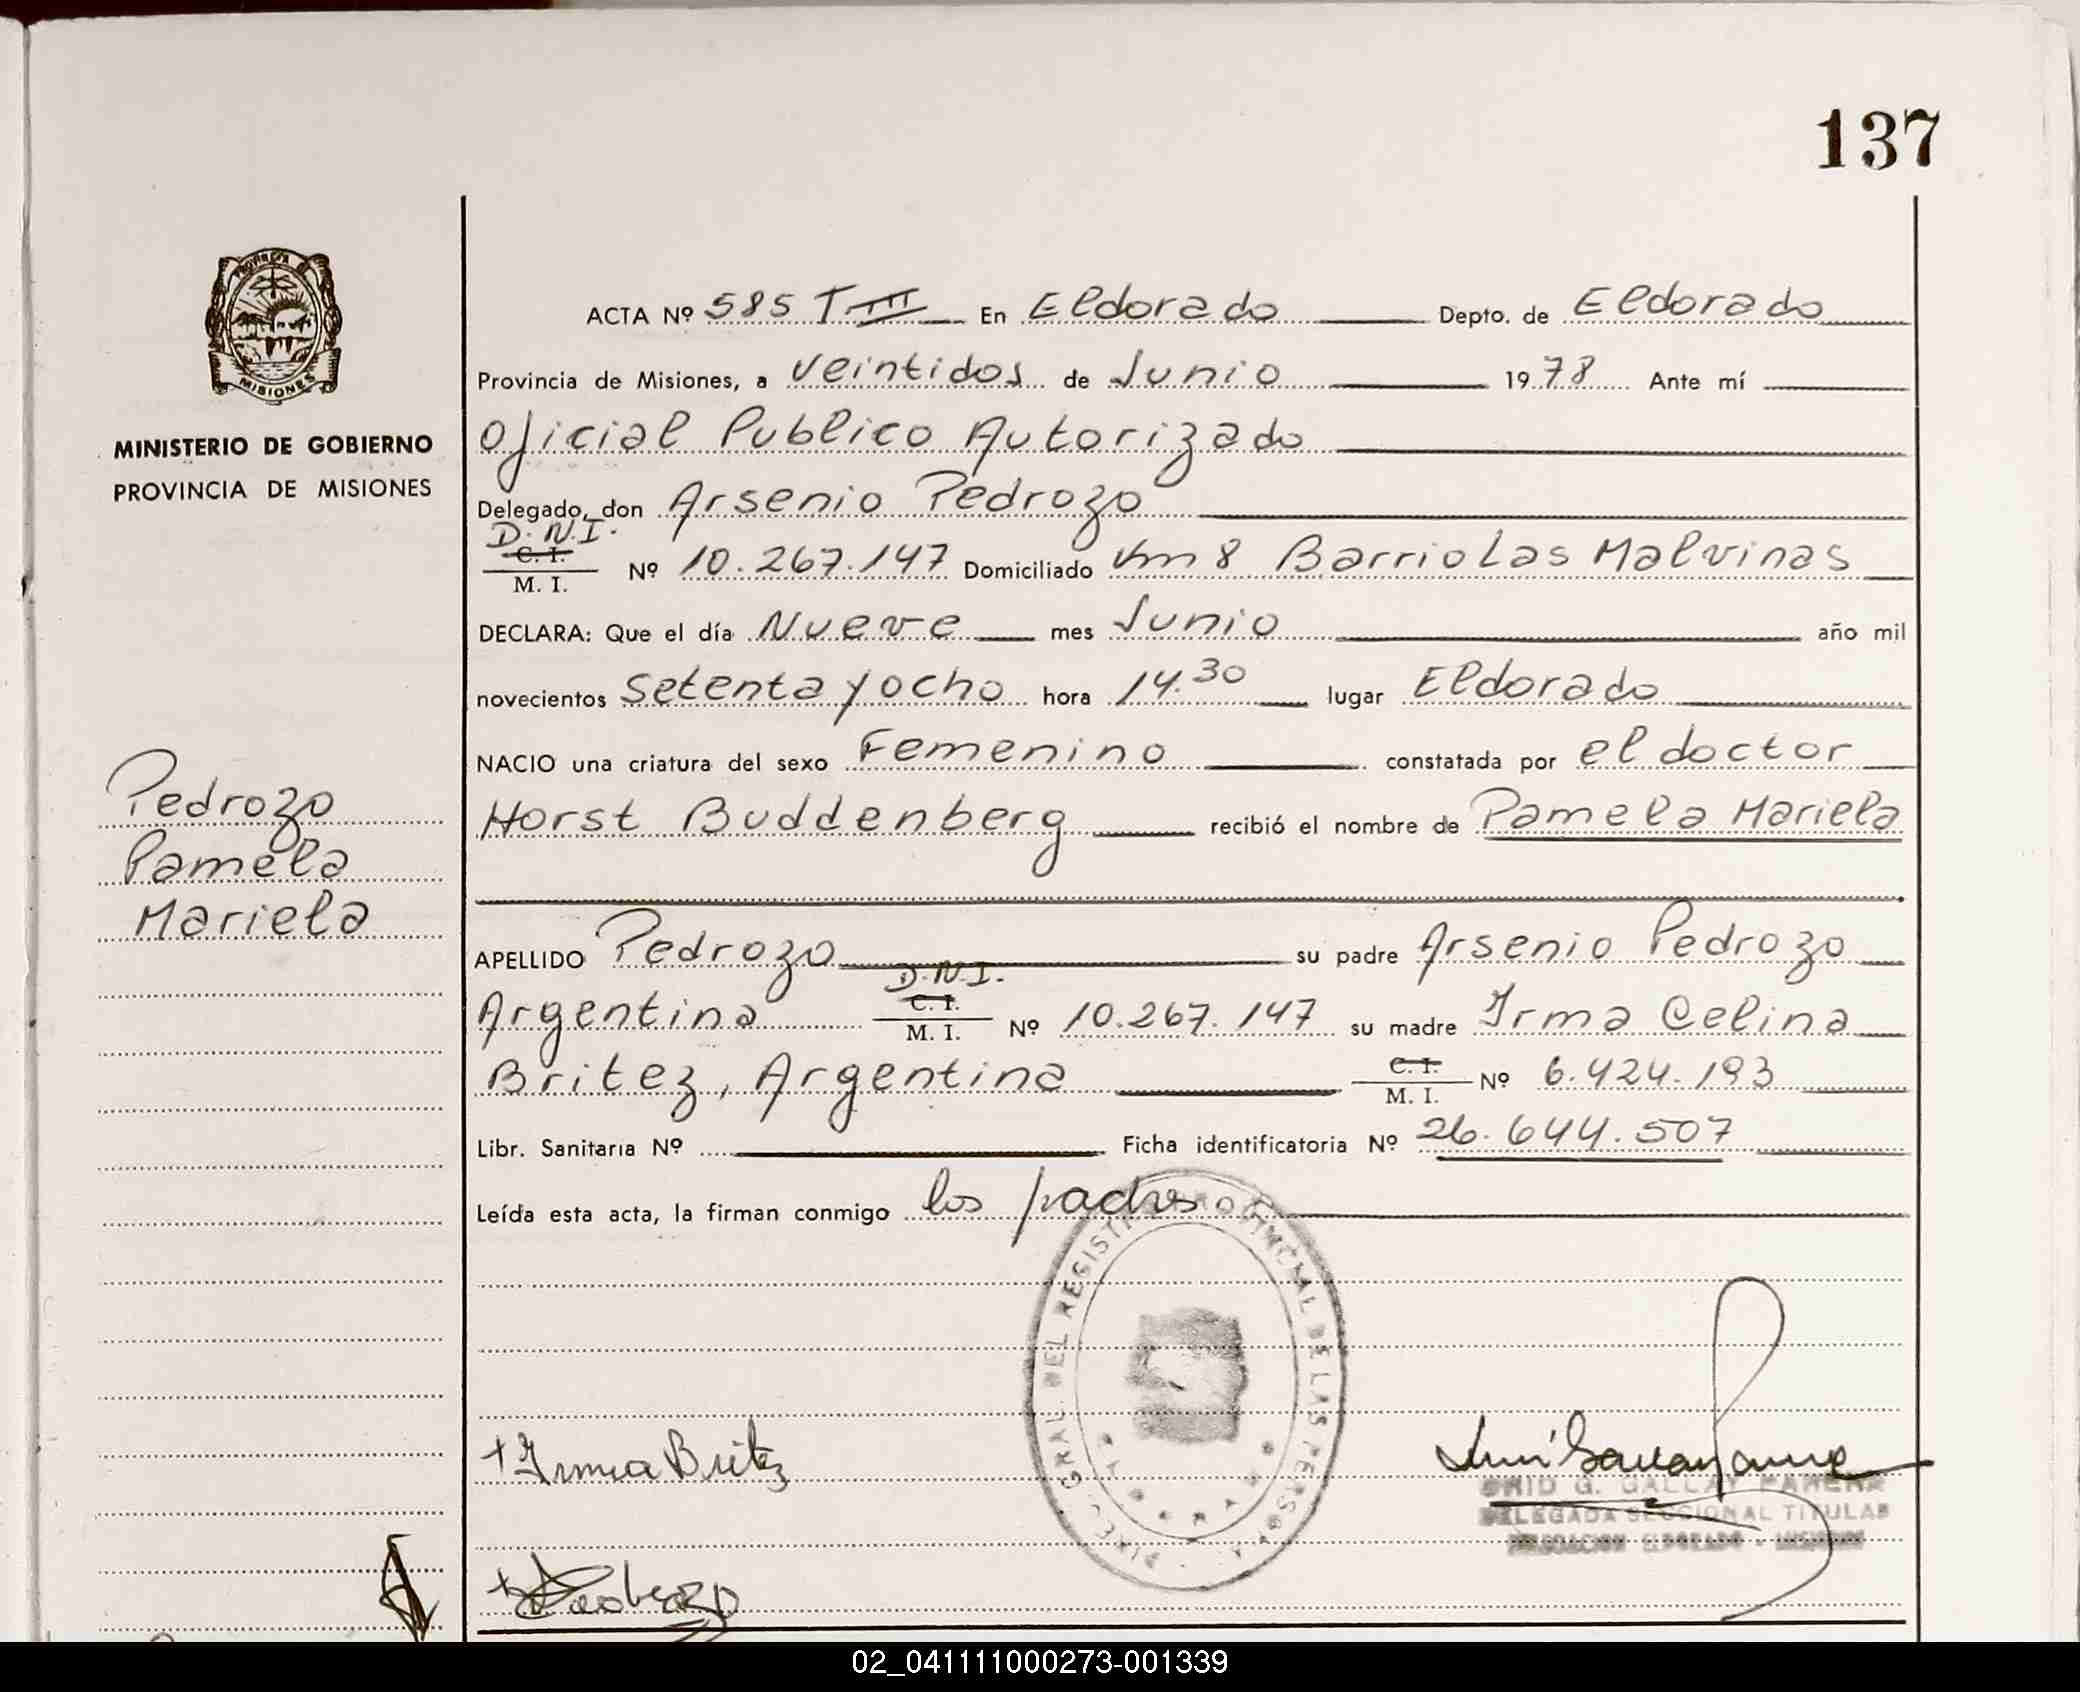 137
PROVINCIA
MISIONES
MINISTERIO DE GOBIERNO
PROVINCIA DE MISIONES
Pedrozo
Pamela
Mariela
ACTA Nº 585 T III En Eldorado Depto. de Eldorado
Provincia de Misiones, a veintidos de Junio 1978 Ante mí
Oficial Publico Autorizado
Delegado, don Arsenio Pedrozo
D.N.I.
C. I.
M. I. Nº 10.267.147 Domiciliado Km 8 Barrio Las Malvinas
DECLARA: Que el día Nueve mes Junio año mil
novecientos setenta y ocho hora 14.30 lugar Eldorado
NACIO una criatura del sexo Femenino constatada por el doctor
Horst Buddenberg recibió el nombre de Pamela Mariela
APELLIDO Pedrozo su padre Arsenio Pedrozo
D.N.I.
C. I.
Argentina M. I. Nº 10.267.147 su madre Irma Celina
Britez, Argentina C. I. M. I. Nº 6.424.193
Libr. Sanitaria Nº Ficha identificatoria Nº 26.644.507
Leída esta acta, la firman conmigo los padres
DIREC. GRAL. DEL REGISTRO PROVINCIAL DE LAS PERSONAS
+ Irma Britez
G. GALLAY
DELEGADA SECCIONAL TITULAR
DELEGACION ELDORADO - MISIONES
+ Pedrozo
02_041111000273-001339